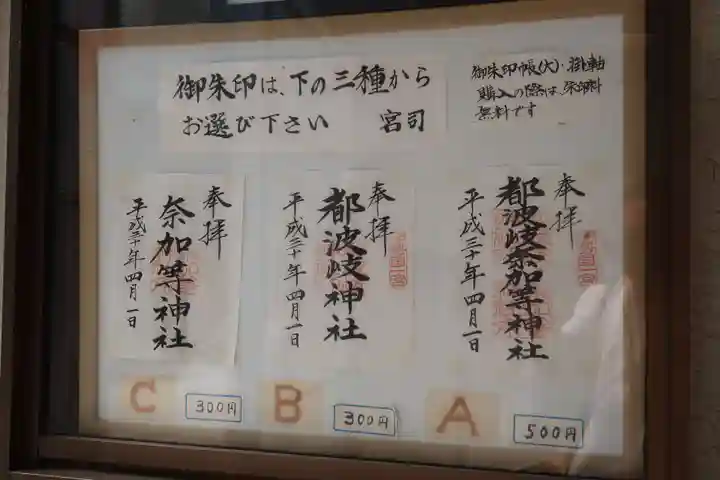 御朱印は、下の三種から
お選び下さい 宮司
御朱印帳(大)・掛軸
購入の際は、朱印料
無料です
奉拝
都波岐奈加等神社
平成三十年四月一日
A
500円
奉拝
都波岐神社
平成三十年四月一日
B
300円
奉拝
奈加等神社
平成三十年四月一日
C
300円